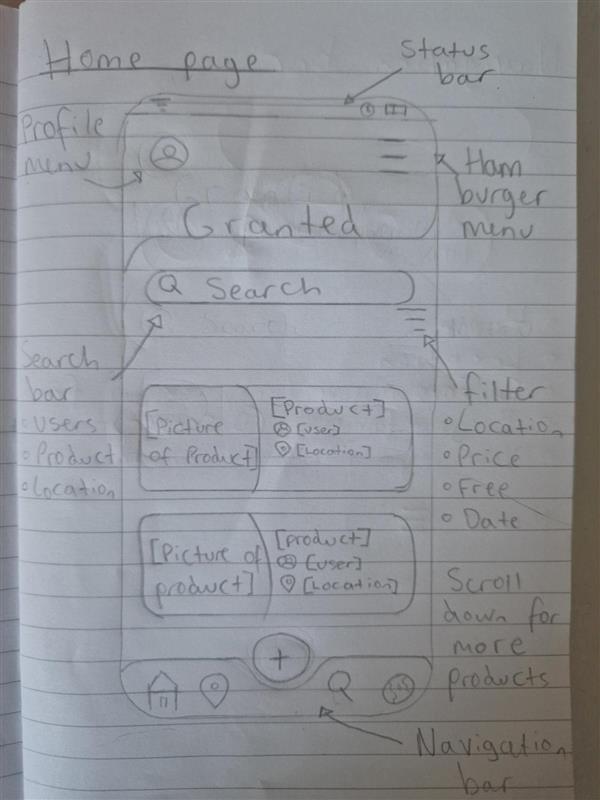 Home page
Status
bar
Profile
menu
Ham
burger
menu
Granted
Search
Search
bar
◦ Users
◦ Product
◦ Location
filter
◦ Location
◦ Price
◦ Free
◦ Date
[Picture
of Product]
[Product]
[User]
[Location]
[Picture of
product]
[product]
[user]
[Location]
Scroll
down for
more
products
+
Navigation
bar